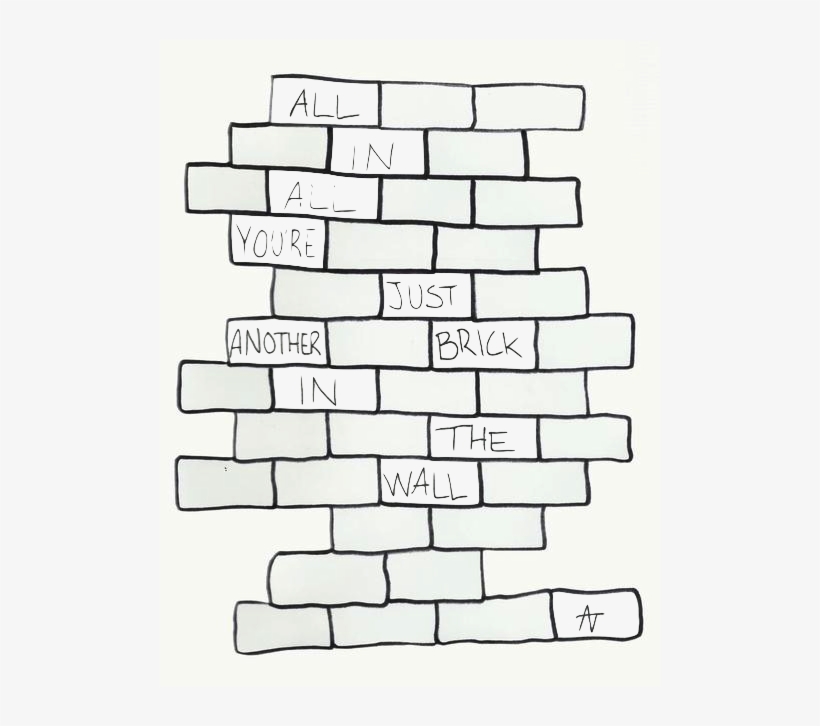 ALL
IN
ALL
YOU'RE
JUST
ANOTHER BRICK
IN
THE
WALL